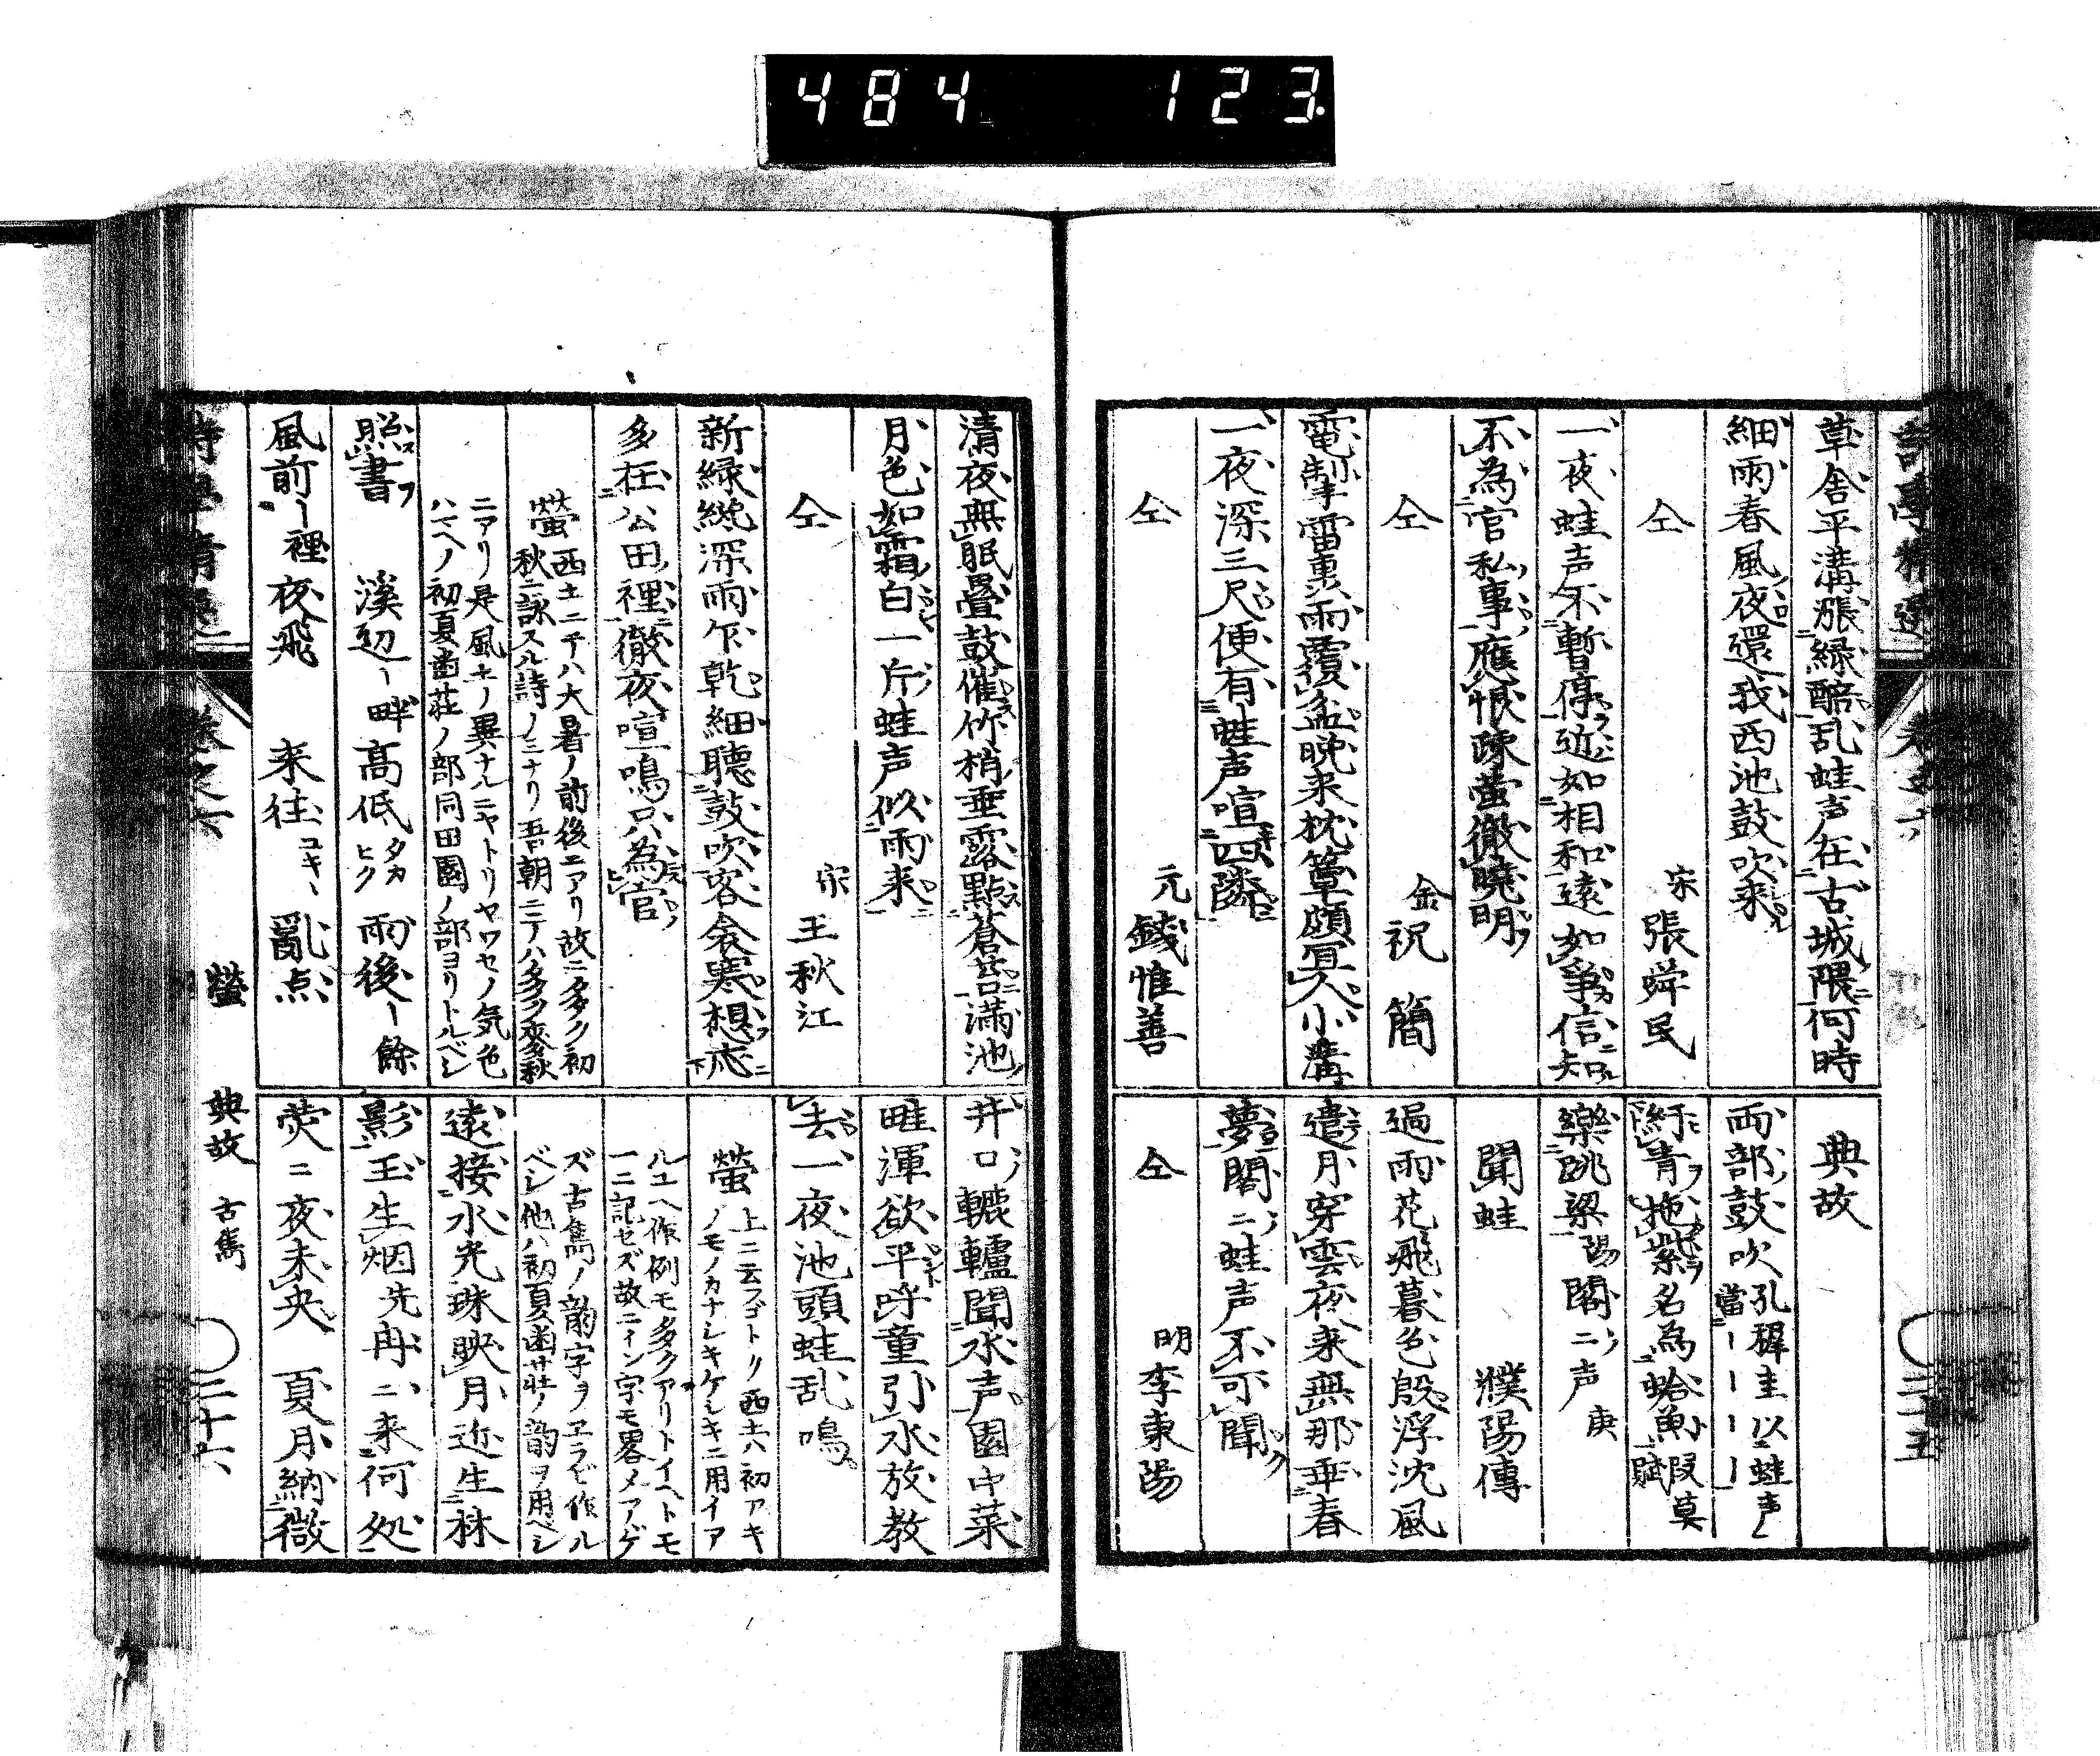 484 123
草舎平溝漲緑醅乱蛙声在古城隈何時
細雨春風夜還我西池鼓吹来
仝 宋 張舜民
一夜蛙声不暫停近如相和遠如爭信知
不為官私事應恨疎螢徹曉明
仝 金 祝簡
電掣雷轟雨覆盆晩来枕簟頗宜人小溝
一夜深三尺便有蛙声喧四隣
仝 元 錢惟善
典故
両部鼓吹孔稚圭以蛙声
當
紆青拖紫名為蛤魚段莫賦
樂跳梁陽閣ニ声庚
聞蛙 濮陽傳
過雨花飛暮色殷浮沈風
遣月穿雲夜来無那重春
夢閣ニ蛙声不可聞
仝 明 李東陽
二十五
清夜無眠畳鼓催竹梢垂露點蒼苔満池
月色如霜白一片蛙声似雨来
仝 宋 王秋江
新緑純深雨乍乾細聴鼓吹客衾寒想応
多在公田裡徹夜喧鳴只為官
螢 西土ニテハ大暑ノ前後ニアリ故ニ多ク初
秋ニ詠スル詩ノミナリ吾朝ニテハ多ク麥秋
ニアリ是風土ノ異ナルニヤトリヤワセノ気色
ハスヘノ初夏幽荘ノ部同田園ノ部ヨリトルベシ
照書 溪辺ー畔 高低 タカヒク 雨後ー餘
風前ー裡 夜飛 来往 ユキヽ 亂点
井口轆轤聞水声園中菜
畦渾欲平呼童引水放教
去一夜池頭蛙乱鳴
螢 上ニ云フゴトク西土ハ初アキ
ノモノカナシキケシキニ用イア
ルユヘ作例モ多クアリトイヘトモ
一ニ記セズ故ニイン字モ畧メアゲ
ズ古雋ノ韵字ヲヱラビ作ル
ベシ他ハ初夏幽荘ノ韵ヲ用ベシ
遠接水光珠映月近生林
影玉生烟 先冉ニ来何処
熒ニ夜未央 夏月納微
螢 典故 古雋
二十六